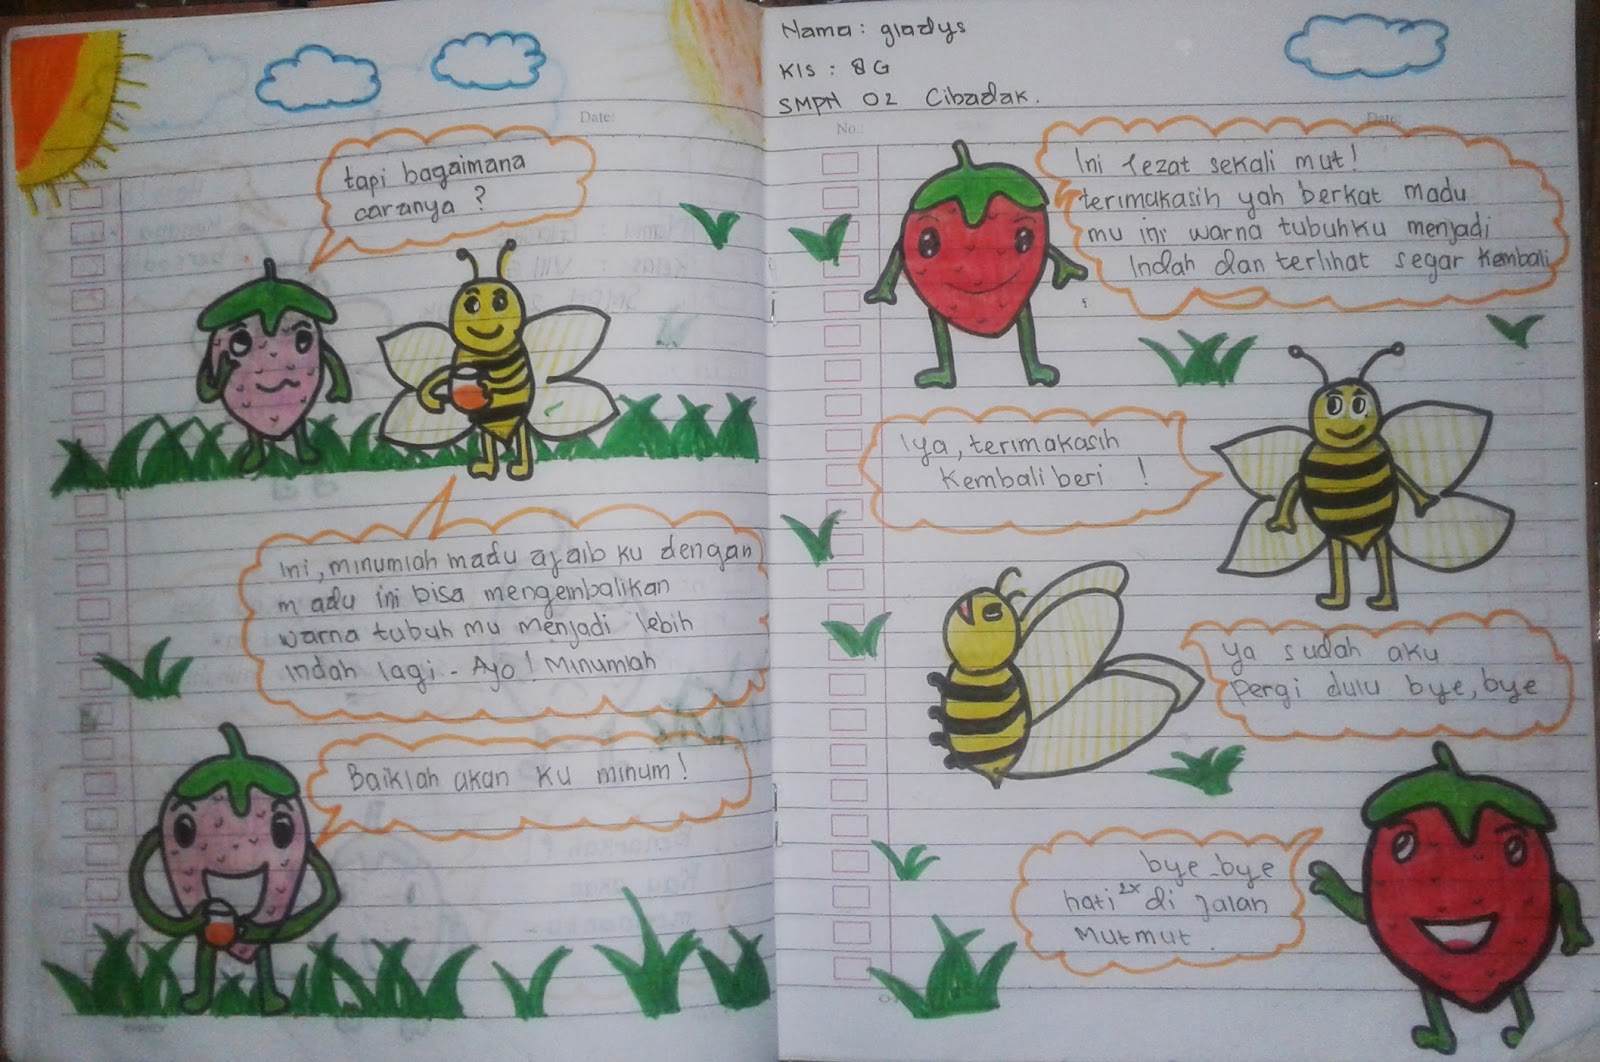 Date:
tapi bagaimana
caranya ?
Ini, minumlah madu ajaib ku dengan
madu ini bisa mengembalikan
warna tubuh mu menjadi lebih
indah lagi - Ayo! Minumlah
Baiklah akan ku minum!
Nama : gladys
Kls : 8G
SMPN 02 Cibadak.
No.:
Date:
Ini lezat sekali mut!
terimakasih yah berkat madu
mu ini warna tubuhku menjadi
Indah dan terlihat segar kembali
Iya, terimakasih
kembali beri !
ya sudah aku
pergi dulu bye, bye
bye-bye
hati 2x di jalan
Mutmut.